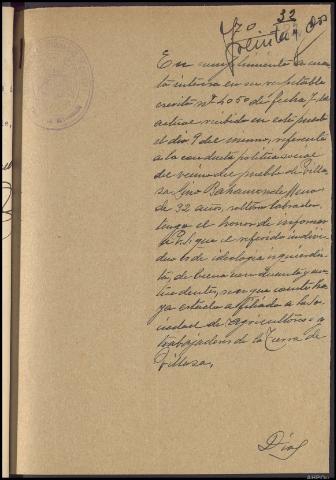 70 32
treinta y dos
En cumplimiento a cuanto interesa en su respetable
escrito nº 4050 de fecha 7 del
actual recibido en este puesto
el día 9 del mismo, referente
a la conducta político social
del vecino del pueblo de Villasa
Gino Bahamonde
de 32 años, soltero labrador,
tengo el honor de informar
a V.S. que el referido individuo
es de ideología izquierdista,
de buena conducta y antecedentes,
sin que conste haya
estado afiliado a la Sociedad
de Agricultores y
trabajadores de la Tierra de
Villasa,
Dios